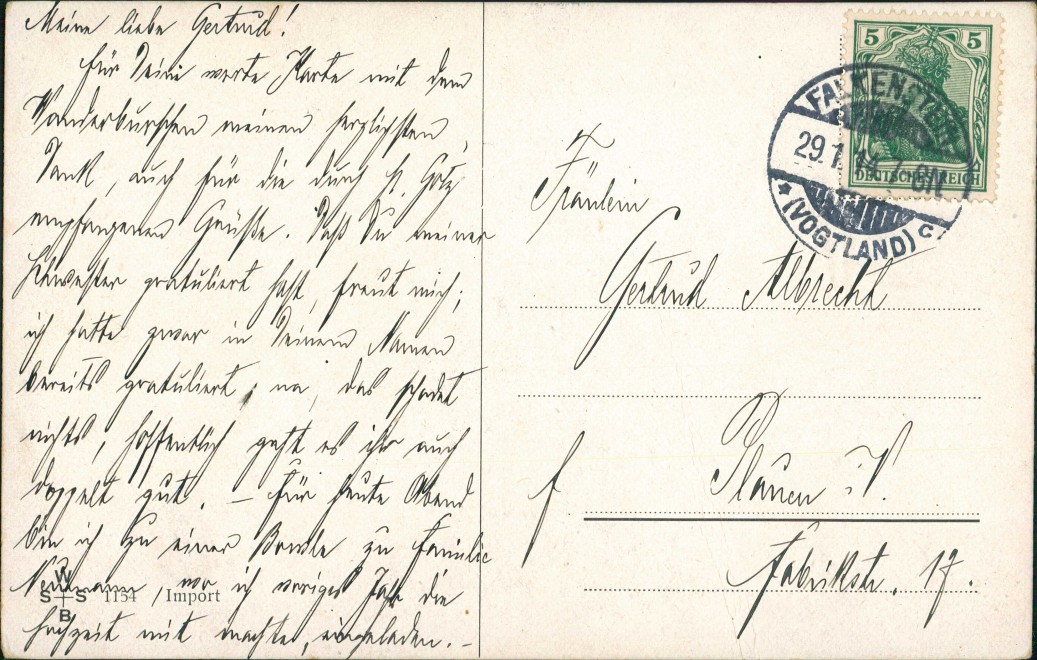 Meine liebe Gertrud!
Für Deine werte Karte mit dem
Wanderburschen meinen herzlichsten
Dank, auch für die durch H. Götz
empfangenen Grüße. Daß Du meiner
Schwester gratuliert hast, freut mich;
ich hatte zwar in Deinem Namen
bereits gratuliert; na, das schadet
nichts, hoffentlich geht es ihr auch
doppelt gut. – Für heute Abend
bin ich zu einer Bowle zu Familie
Neumann, wo ich voriges Jahr die
Hochzeit mit machte, eingeladen. –
W
S S 1154 /Import
B
5 5
DEUTSCHES REICH
FALKENSTEIN
29.1.14
* (VOGTLAND) c
Fräulein
Gertrud Albrecht
Plauen i. V.
Fabrikstr. 17.